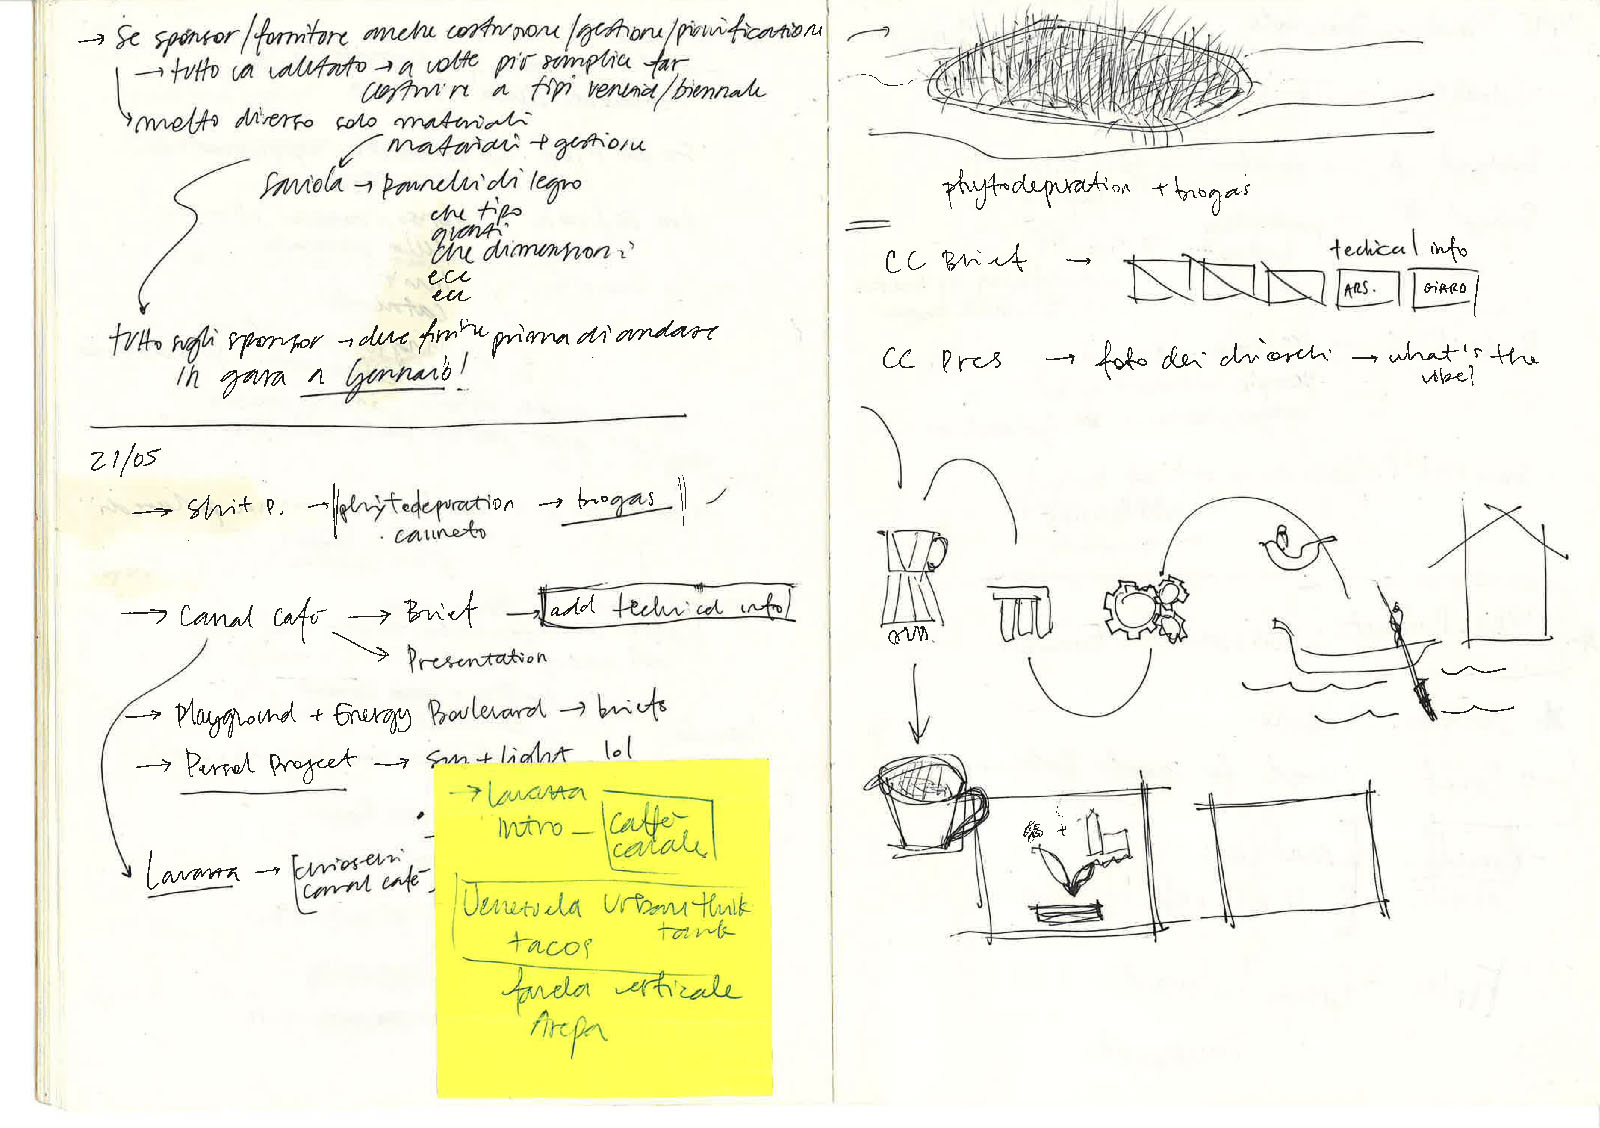 → Se sponsor/fornitore anche costruzione/gestione/pianificazione
→ tutto va valutato → a volte più semplice far
costruire a tipi venezia/biennale
→ molto diverso solo materiali
materiali + gestione
Saviola → pannelli di legno
che tipo
quanti
che dimensioni
ecc
ecc
tutto sugli sponsor → deve finire prima di andare
in gara a Gennaio!
21/05
→ Shit P. → phytodepuration → biogas
canneto
→ Canal cafe → Brief → add technical info
→ Presentation
→ Playground + Energy Boulevard → briefs
→ Persol Project → sun + light lol
Lavazza → chioschi
canal cafè
→ Lavazza
intro
Caffè
canale
Venezuela Urban think
tank
tacos
verticale
Arepa
→
phytodepuration + biogas
CC Brief →
techical info
ARS. GIARD
CC Pres → foto dei chioschi → what's the
vibe?
+